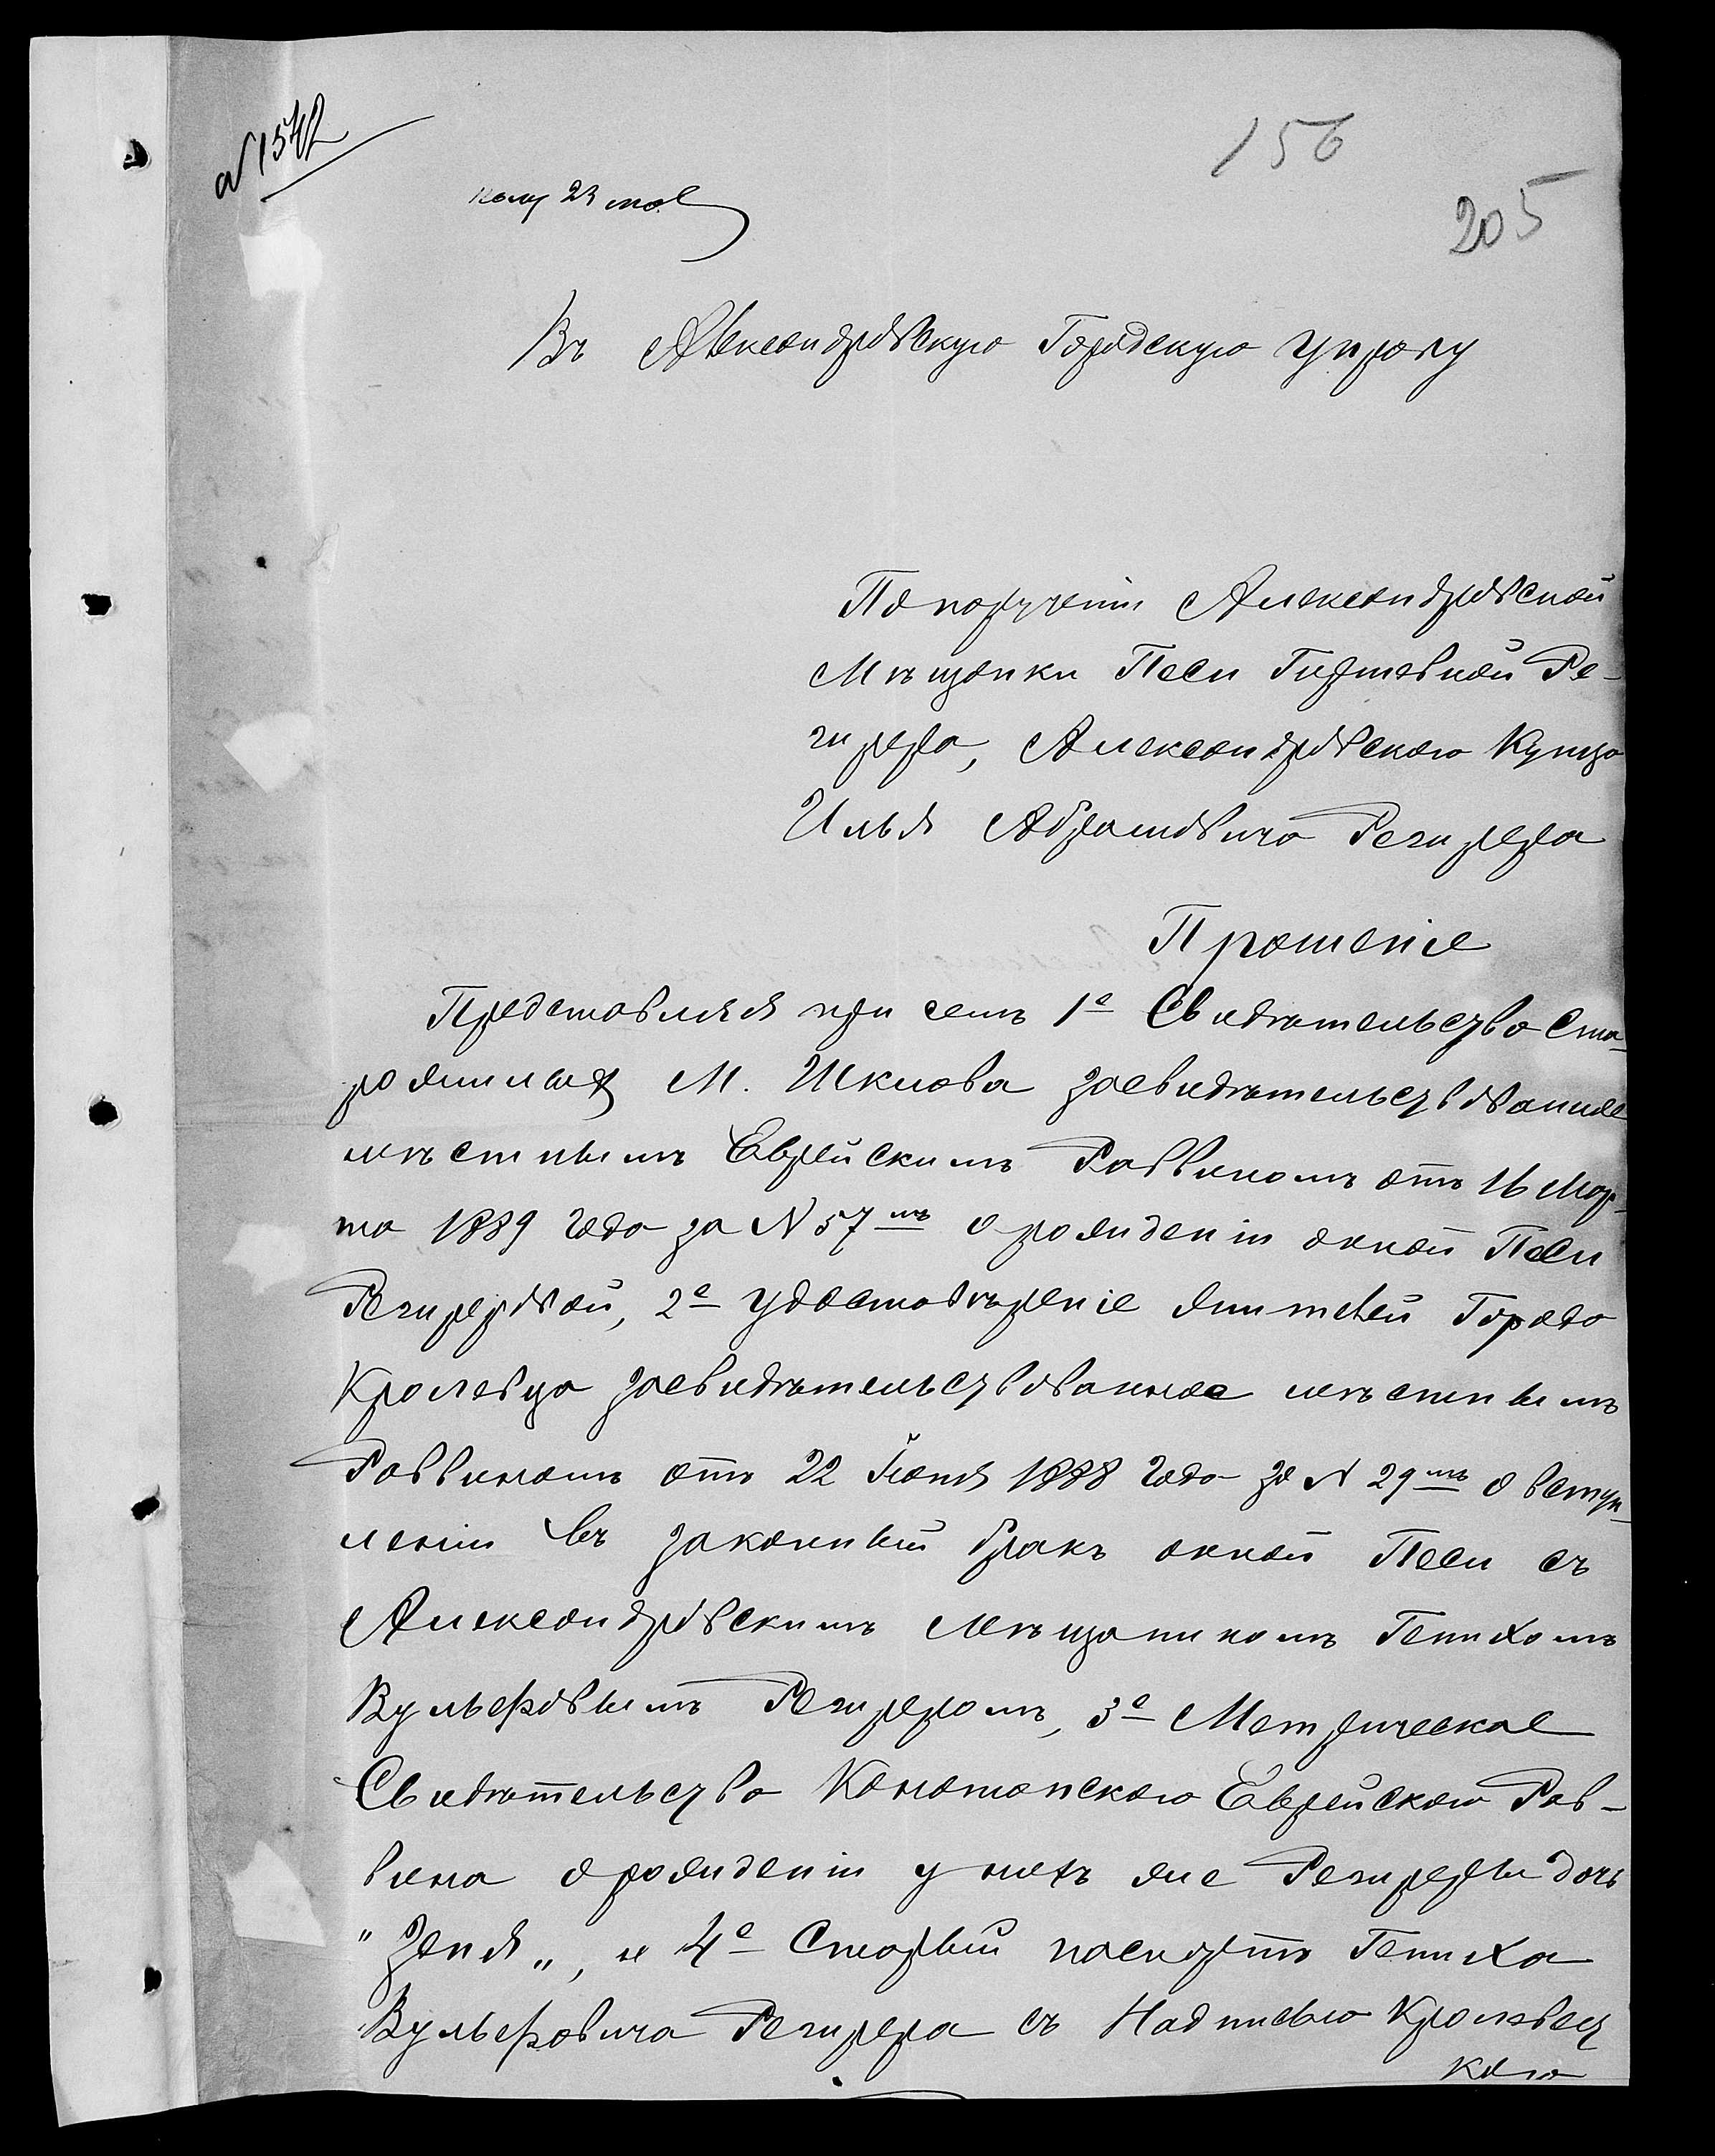 № 1542
156
205
23
Въ Александровскую Городскую Управу
По порученію Александровской
Мѣщанки Песи Гиршевной Ре-
гирера, Александровскаго Купца
Илья Абрамовича Регирера
Прошеніе
Представляя при семъ 1е Свидѣтельство Ста-
рожиловъ М. Шклова засвидѣтельствованное
мѣстнымъ Еврейскимъ Раввиномъ отъ 16 Мар-
та 1889 года за N 57мъ о рожденіи оной Песи
Региреровой, 2е удостовѣреніе жителей Города
Кролевца засвидѣтельствованное мѣстнымъ
Раввиномъ отъ 22 Іюня 1888 года за N 29мъ о вступ-
леніи въ законный бракъ оной Песи съ
Александровскимъ Мѣщаниномъ Генихомъ
Вульфовымъ Региреромъ, 3е Метрическое
Свидѣтельство Конотопскаго Еврейскаго Рав-
вина о рожденіи у нихъ же Региреры дочь
"Геня", и 4е Старый паспортъ Гениха
Вульфовича Регирера съ Надписью Кролевец
каго